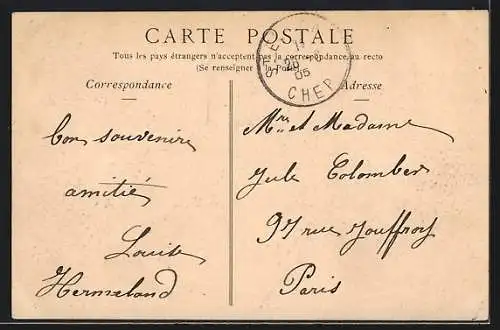 CARTE POSTALE
Tous les pays étrangers n'acceptent pas la correspondance au recto
(Se renseigner à la Poste)
Correspondance
Adresse
CHER
bon souvenir
amitié
Louise
Hermeland
Mr et Madame
Jule Colomber
97 rue Jouffroy
Paris